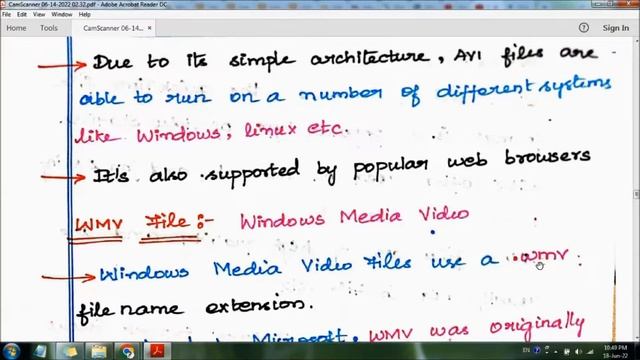 CamScanner 06-14-2022 02.32.pdf - Adobe Acrobat Reader DC
File Edit View Sign Window Help
Home Tools CamScanner 06-14... ×
→ Due to its simple architecture, AVI files are
able to run on a number of different systems
like Windows, linux etc.
→ It's also supported by popular web browsers
WMV File :- Windows Media Video
→ Windows Media Video files use a .wmv
file name extension.
Microsoft. WMV was originally
EN
10:49 PM
18-Jun-22